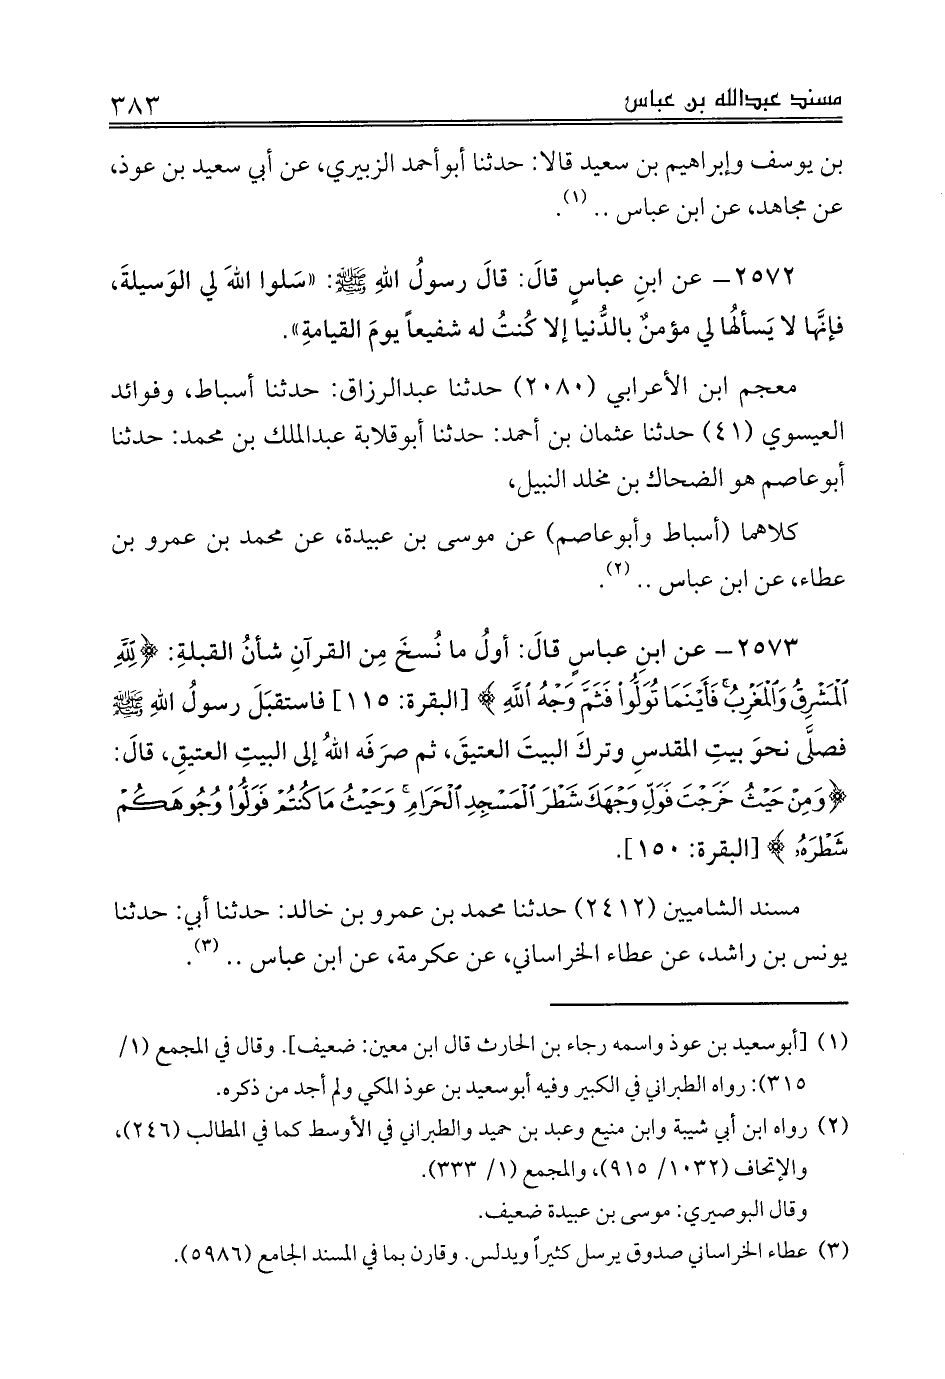 مسند عبدالله بن عباس ٣٨٣
بن يوسف وإبراهيم بن سعيد قالا: حدثنا أبوأحمد الزبيري، عن أبي سعيد بن عوذ،
عن مجاهد، عن ابن عباس .. (١).
٢٥٧٢ – عن ابنِ عباسٍ قالَ: قالَ رسولُ اللهِ ﷺ: «سَلوا اللهَ لي الوَسيلةَ،
فإنَّها لا يَسألهُا لي مؤمنٌ بالدُّنيا إلا كُنتُ له شفيعاً يومَ القيامةِ».
معجم ابن الأعرابي (٢٠٨٠) حدثنا عبدالرزاق: حدثنا أسباط، وفوائد
العيسوي (٤١) حدثنا عثمان بن أحمد: حدثنا أبوقلابة عبدالملك بن محمد: حدثنا
أبوعاصم هو الضحاك بن مخلد النبيل،
كلاهما (أسباط وأبوعاصم) عن موسى بن عبيدة، عن محمد بن عمرو بن
عطاء، عن ابن عباس .. (٢).
٢٥٧٣ – عن ابنِ عباسٍ قالَ: أولُ ما نُسخَ مِن القرآنِ شأنُ القبلةِ: ﴿وَلِلَّهِ
ٱلْمَشْرِقُ وَٱلْمَغْرِبُ ۚ فَأَيْنَمَا تُوَلُّوا۟ فَثَمَّ وَجْهُ ٱللَّهِ﴾ [البقرة: ١١٥] فاستقبَلَ رسولُ اللهِ ﷺ
فصلَّى نحوَ بيتِ المقدسِ وتركَ البيتَ العتيقَ، ثم صرَفَه اللهُ إلى البيتِ العتيقِ، قالَ:
﴿وَمِنْ حَيْثُ خَرَجْتَ فَوَلِّ وَجْهَكَ شَطْرَ ٱلْمَسْجِدِ ٱلْحَرَامِ ۚ وَحَيْثُ مَا كُنتُمْ فَوَلُّوا۟ وُجُوهَكُمْ
شَطْرَهُۥ﴾ [البقرة: ١٥٠].
مسند الشاميين (٢٤١٢) حدثنا محمد بن عمرو بن خالد: حدثنا أبي: حدثنا
يونس بن راشد، عن عطاء الخراساني، عن عكرمة، عن ابن عباس .. (٣).
(١) [أبوسعيد بن عوذ واسمه رجاء بن الحارث قال ابن معين: ضعيف]. وقال في المجمع (١/
٣١٥): رواه الطبراني في الكبير وفيه أبوسعيد بن عوذ المكي ولم أجد من ذكره.
(٢) رواه ابن أبي شيبة وابن منيع وعبد بن حميد والطبراني في الأوسط كما في المطالب (٢٤٦)،
والإتحاف (١٠٣٢/ ٩١٥)، والمجمع (١/ ٣٣٣).
وقال البوصيري: موسى بن عبيدة ضعيف.
(٣) عطاء الخراساني صدوق يرسل كثيراً ويدلس. وقارن بما في المسند الجامع (٥٩٨٦).